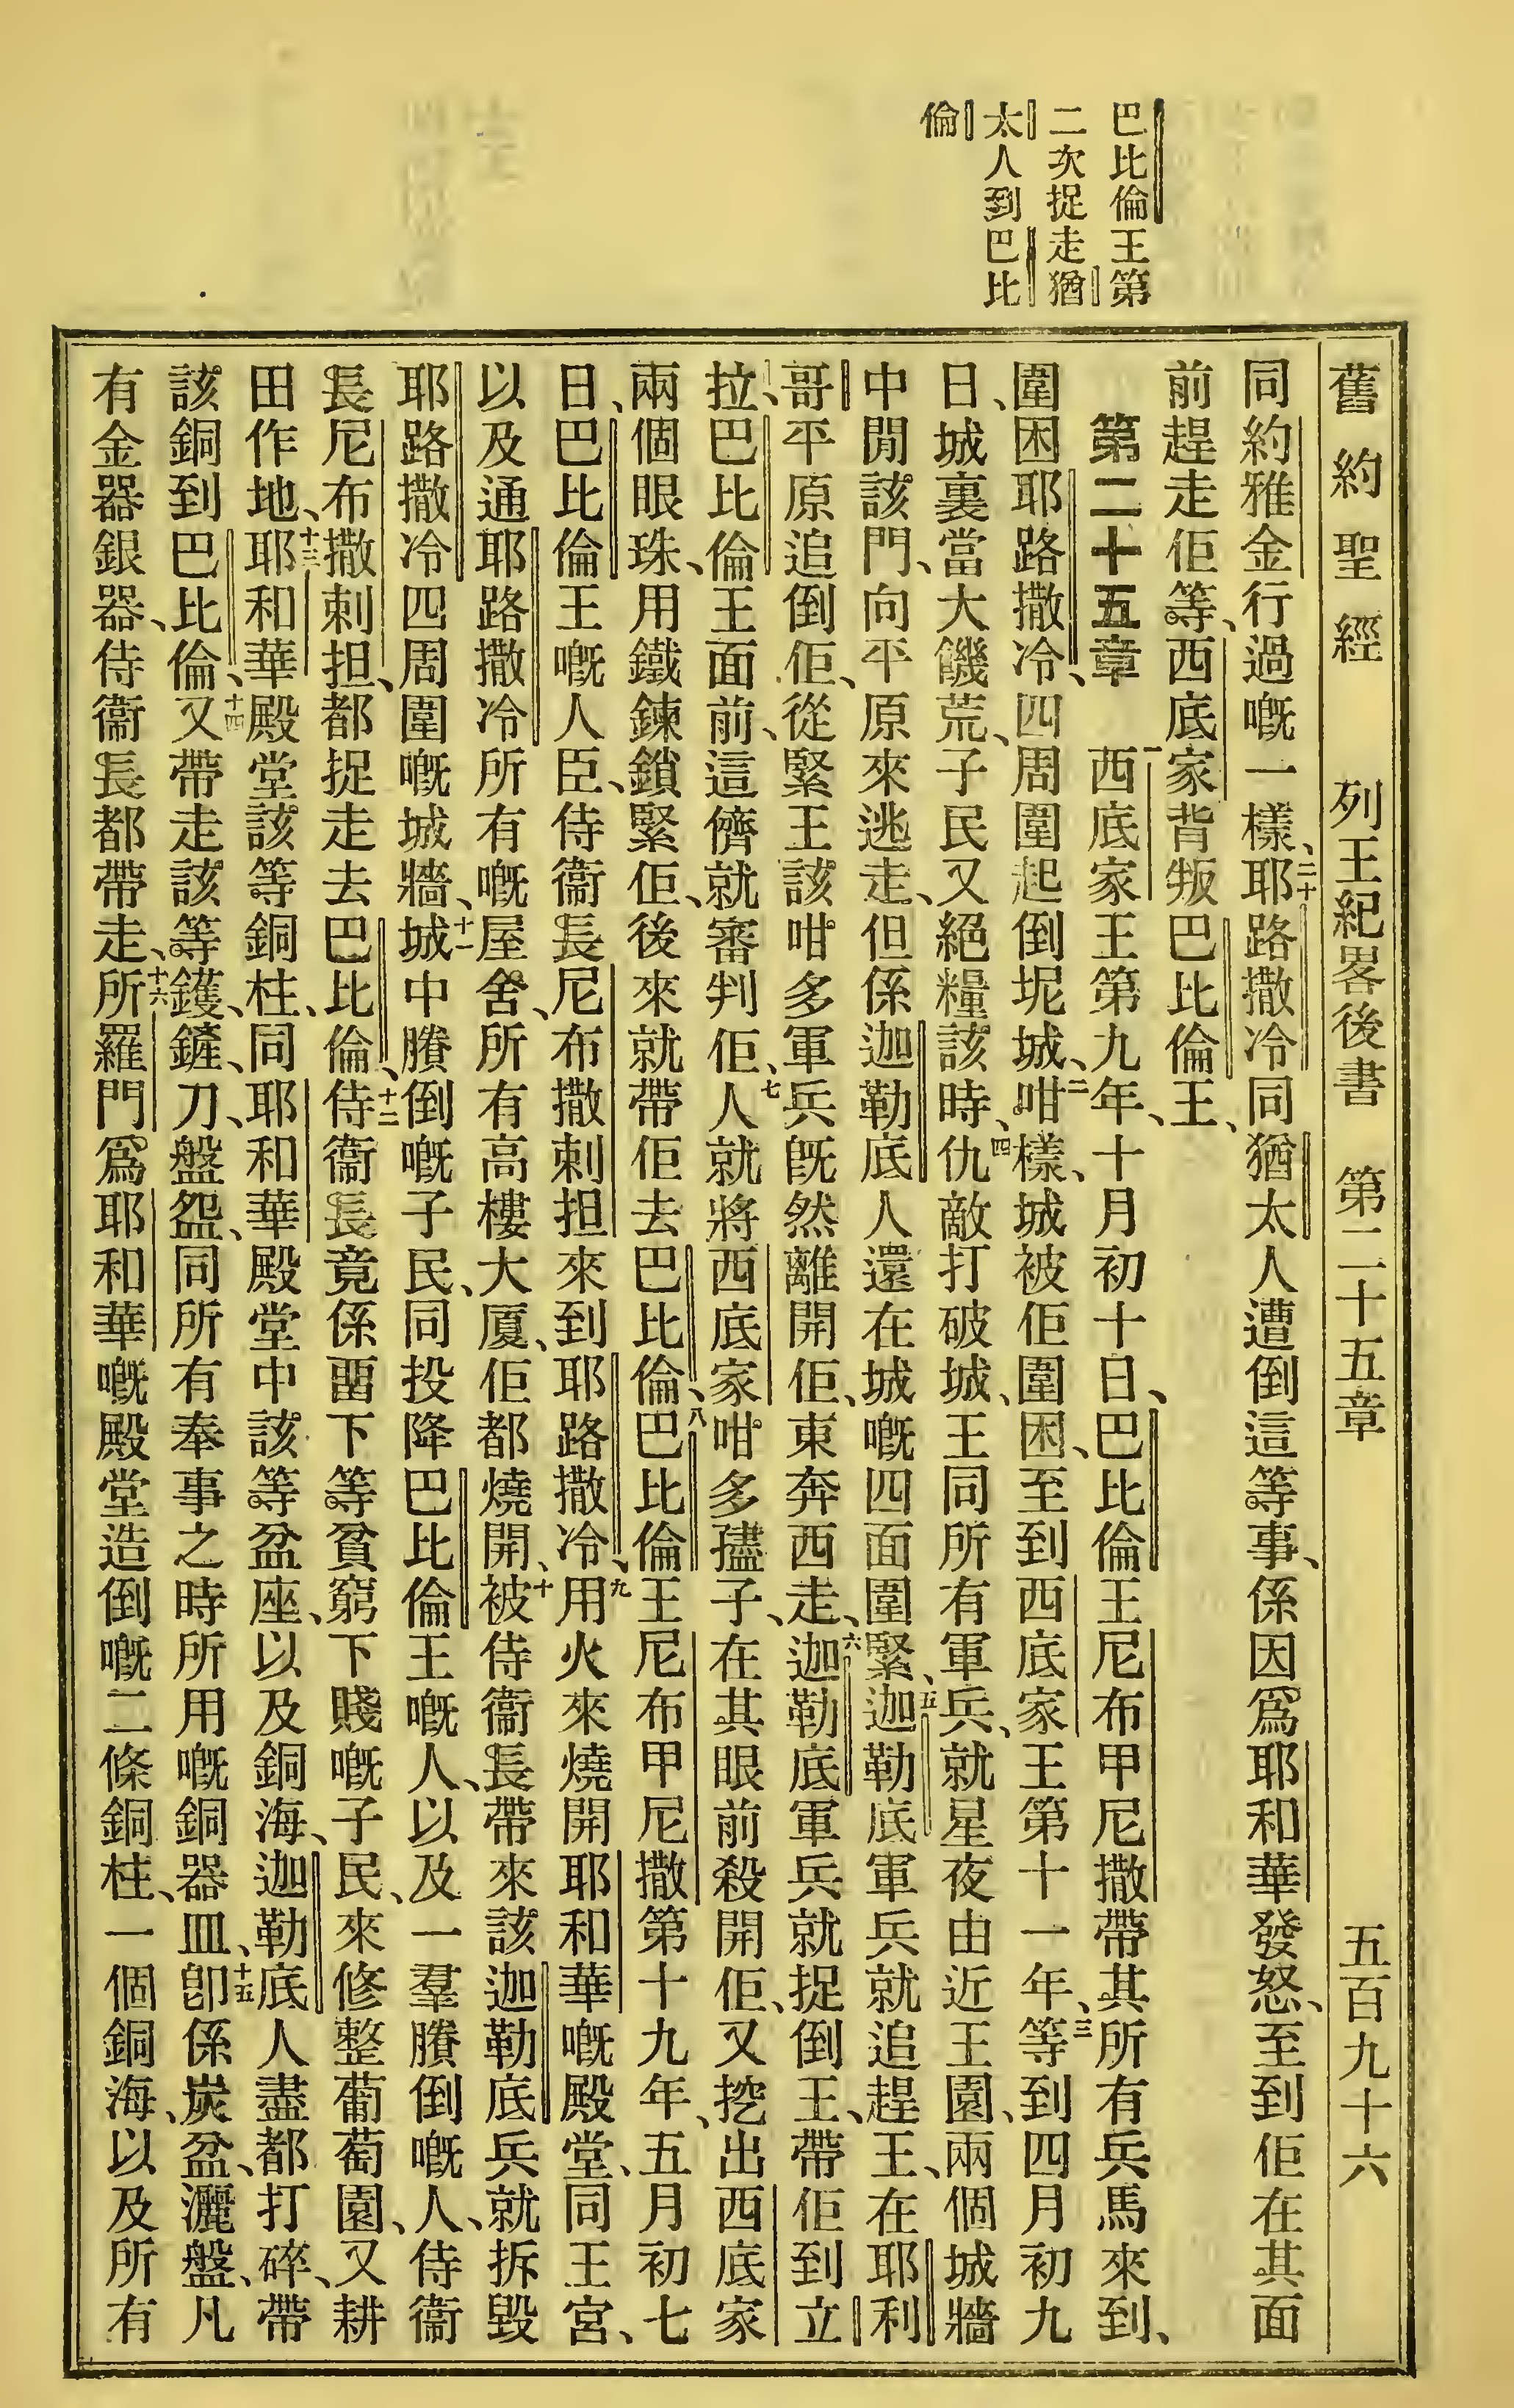 巴比倫王第
二次捉走猶
太人到巴比
倫
舊約聖經 列王紀畧後書 第二十五章 五百九十六
同約雅金行過嘅一樣、二十耶路撒冷同猶太人遭倒這等事、係因爲耶和華發怒、至到佢在其面
前趕走佢等、西底家背叛巴比倫王、
第二十五章 一西底家王第九年、十月初十日、巴比倫王尼布甲尼撒帶其所有兵馬來到、
圍困耶路撒冷、四周圍起倒坭城、二咁樣、城被佢圍困、至到西底家王第十一年、三等到四月初九
日、城裏當大饑荒、子民又絕糧該時、四仇敵打破城、王同所有軍兵、就星夜由近王園、兩個城牆
中閒該門、向平原來逃走、但係迦勒底人還在城嘅四面圍緊、五迦勒底軍兵就追趕王、在耶利
哥平原追倒佢、從緊王該咁多軍兵既然離開佢、東奔西走、六迦勒底軍兵就捉倒王、帶佢到立
拉、巴比倫王面前、這儕就審判佢、七人就將西底家咁多孻子、在其眼前殺開佢、又挖出西底家
兩個眼珠、用鐵鍊鎖緊佢、後來就帶佢去巴比倫、八巴比倫王尼布甲尼撒第十九年、五月初七
日、巴比倫王嘅人臣、侍衞長尼布撒剌担來到耶路撒冷、九用火來燒開耶和華嘅殿堂、同王宮、
以及通耶路撒冷所有嘅屋舍、所有高樓大厦、佢都燒開、十被侍衞長帶來該迦勒底兵就拆毀
耶路撒冷四周圍嘅城牆、十一城中賸倒嘅子民、同投降巴比倫王嘅人、以及一羣賸倒嘅人、侍衞
長尼布撒剌担、都捉走去巴比倫、十二侍衞長竟係畱下等貧窮下賤嘅子民、來修整葡萄園、又耕
田作地、十三耶和華殿堂該等銅柱、同耶和華殿堂中該等盆座、以及銅海、迦勒底人盡都打碎、帶
該銅到巴比倫、十四又帶走該等鑊、鏟、刀、盤、盌、同所有奉事之時所用嘅銅器皿、十五卽係炭盆、灑盤、凡
有金器銀器、侍衞長都帶走、十六所羅門爲耶和華嘅殿堂造倒嘅二條銅柱、一個銅海、以及所有